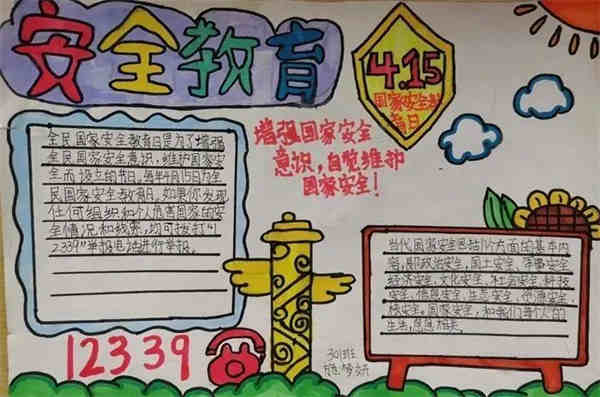 安全教育
4.15
国家安全教
育日
增强国家安全
意识，自觉维护
国家安全！
全民国家安全教育日是为了增强
全民国家安全意识，维护国家安
全而设立的节日。每年4月15日为全
民国家安全教育日。如果你发现
任何组织和个人危害国家的安
全情况和线索，均可拨打"1
2339"举报电话进行举报。
12339
当代国家安全包括11个方面的基本内
容，即政治安全，国土安全、军事安全
经济安全，文化安全、社会安全，科技
安全，信息安全，生态安全，资源安全
核安全。国家安全，和我们每个人的
生生息息相关。
301班